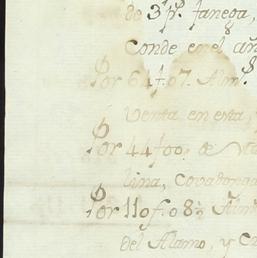 de 3 p.s fanega,
Conde en el añ
Por 64 f. 07. Alm.s
Venta en esta,
Por 44 f 00, de
lina, Covadrega
Por 110 f. 08½ Alm
del Alamo, y C